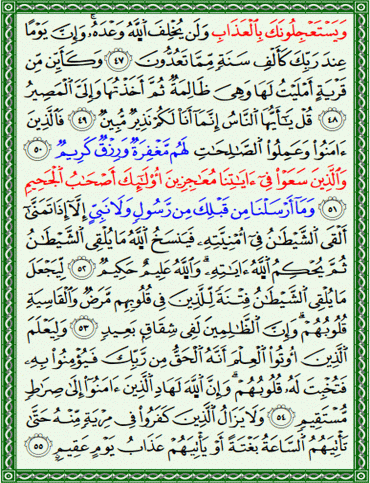 وَيَسْتَعْجِلُونَكَ بِالْعَذَابِ وَلَن يُخْلِفَ اللَّهُ وَعْدَهُ ۚ وَإِنَّ يَوْمًا
عِندَ رَبِّكَ كَأَلْفِ سَنَةٍ مِّمَّا تَعُدُّونَ ٤٧ وَكَأَيِّن مِّن
قَرْيَةٍ أَمْلَيْتُ لَهَا وَهِيَ ظَالِمَةٌ ثُمَّ أَخَذْتُهَا وَإِلَيَّ الْمَصِيرُ
٤٨ قُلْ يَٰٓأَيُّهَا النَّاسُ إِنَّمَا أَنَا لَكُمْ نَذِيرٌ مُّبِينٌ ٤٩ فَالَّذِينَ
ءَامَنُوا وَعَمِلُوا الصَّٰلِحَٰتِ لَهُم مَّغْفِرَةٌ وَرِزْقٌ كَرِيمٌ ٥٠
وَالَّذِينَ سَعَوْا فِيٓ ءَايَٰتِنَا مُعَٰجِزِينَ أُولَٰٓئِكَ أَصْحَٰبُ الْجَحِيمِ
٥١ وَمَآ أَرْسَلْنَا مِن قَبْلِكَ مِن رَّسُولٍ وَلَا نَبِيٍّ إِلَّآ إِذَا تَمَنَّىٰٓ
أَلْقَى الشَّيْطَٰنُ فِيٓ أُمْنِيَّتِهِ فَيَنسَخُ اللَّهُ مَا يُلْقِي الشَّيْطَٰنُ
ثُمَّ يُحْكِمُ اللَّهُ ءَايَٰتِهِ ۗ وَاللَّهُ عَلِيمٌ حَكِيمٌ ٥٢ لِّيَجْعَلَ
مَا يُلْقِي الشَّيْطَٰنُ فِتْنَةً لِّلَّذِينَ فِي قُلُوبِهِم مَّرَضٌ وَالْقَاسِيَةِ
قُلُوبُهُمْ ۗ وَإِنَّ الظَّٰلِمِينَ لَفِي شِقَاقٍ بَعِيدٍ ٥٣ وَلِيَعْلَمَ
الَّذِينَ أُوتُوا الْعِلْمَ أَنَّهُ الْحَقُّ مِن رَّبِّكَ فَيُؤْمِنُوا بِهِ
فَتُخْبِتَ لَهُ قُلُوبُهُمْ ۗ وَإِنَّ اللَّهَ لَهَادِ الَّذِينَ ءَامَنُوٓا إِلَىٰ صِرَٰطٍ
مُّسْتَقِيمٍ ٥٤ وَلَا يَزَالُ الَّذِينَ كَفَرُوا فِي مِرْيَةٍ مِّنْهُ حَتَّىٰ
تَأْتِيَهُمُ السَّاعَةُ بَغْتَةً أَوْ يَأْتِيَهُمْ عَذَابُ يَوْمٍ عَقِيمٍ ٥٥